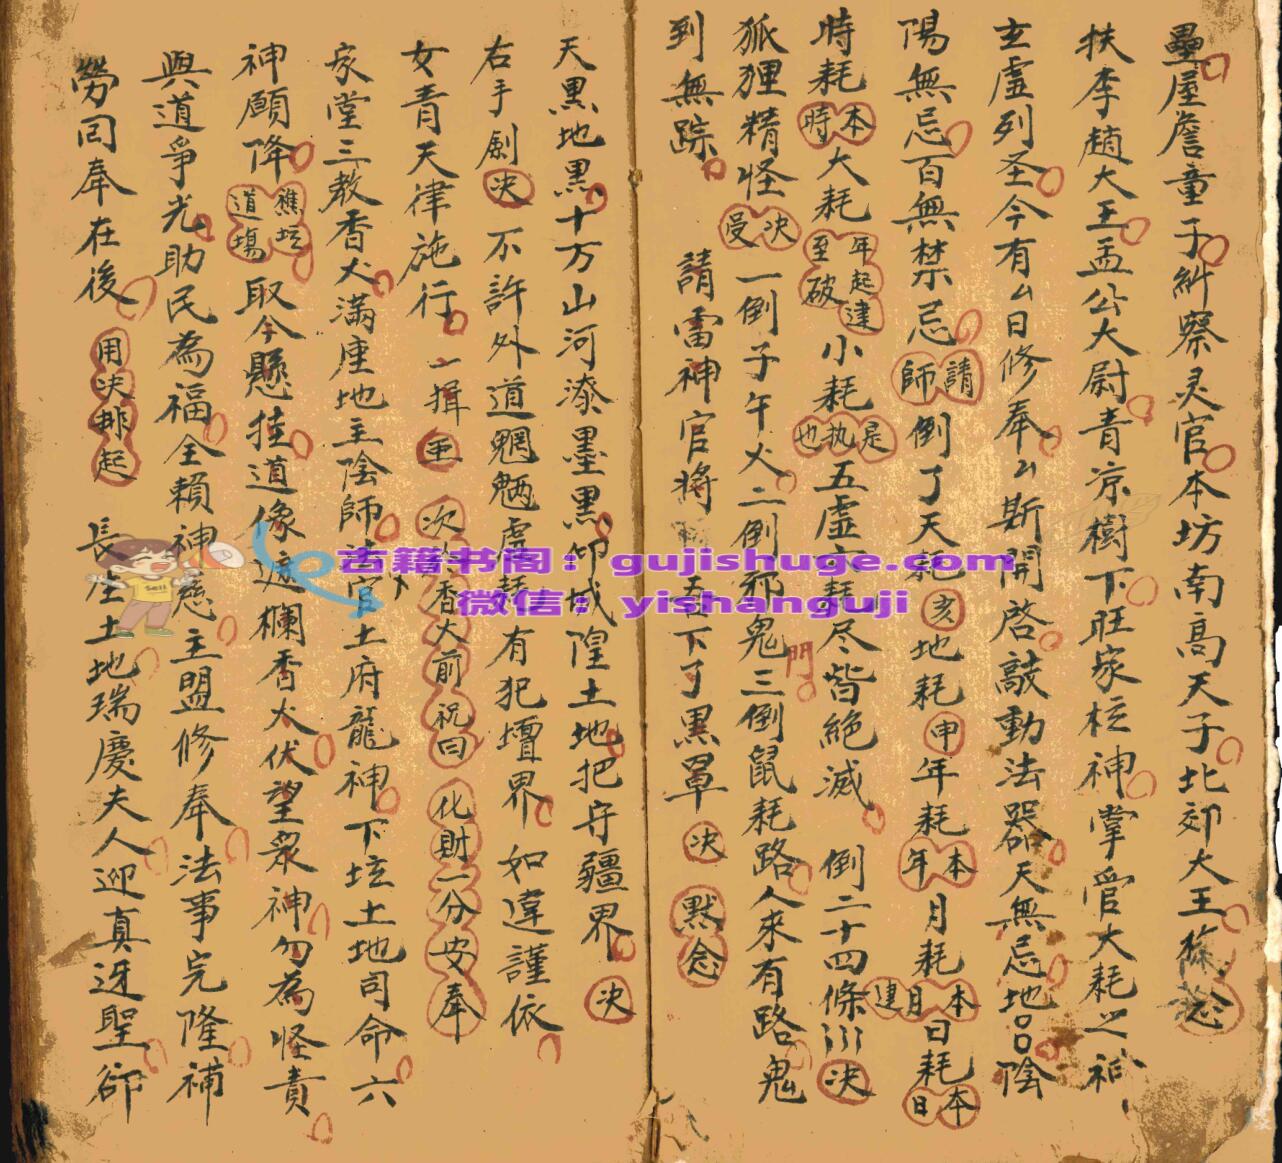 壘屋詹童子糾察灵官本坊南高天子北郊大王
扶李趙大王孟公大尉青凉樹下旺家柱神掌管大耗之神
玄虛列圣今有ㄙ日修奉ㄙ斯開啓敲動法器天無忌地吕陰
陽無忌百無禁忌請師倒了天耗亥地耗申年耗本年月耗本月建日耗本日
時耗本時大耗年起建至破小耗是执也五虛六耗尽皆絕滅倒二十四條川決
狐狸精怪決受一倒子午火二倒邪鬼門三倒鼠耗路人來有路鬼
到無踪請雷神官將下了黑罩決默念
天黑地黑十方山河漆墨黑仰城隍土地把守疆界決
右手劍決不許外道魍魎虛耗有犯壇界如違謹依
女青天律施行一揖
次香火前祝曰化財一分安奉
家堂三教香火滿座地主陰師法官土府龍神下坛土地司命六
神願降醮坛道塲取今懸挂道像遮欄香火伏望衆神勿為怪責
與道爭光助民為福全賴神慈主盟修奉法事完隆補
勞同奉在後用決排起長生土地瑞慶夫人迎真迓聖卻
古籍书阁：gujishuge.com
微信：yishanguji